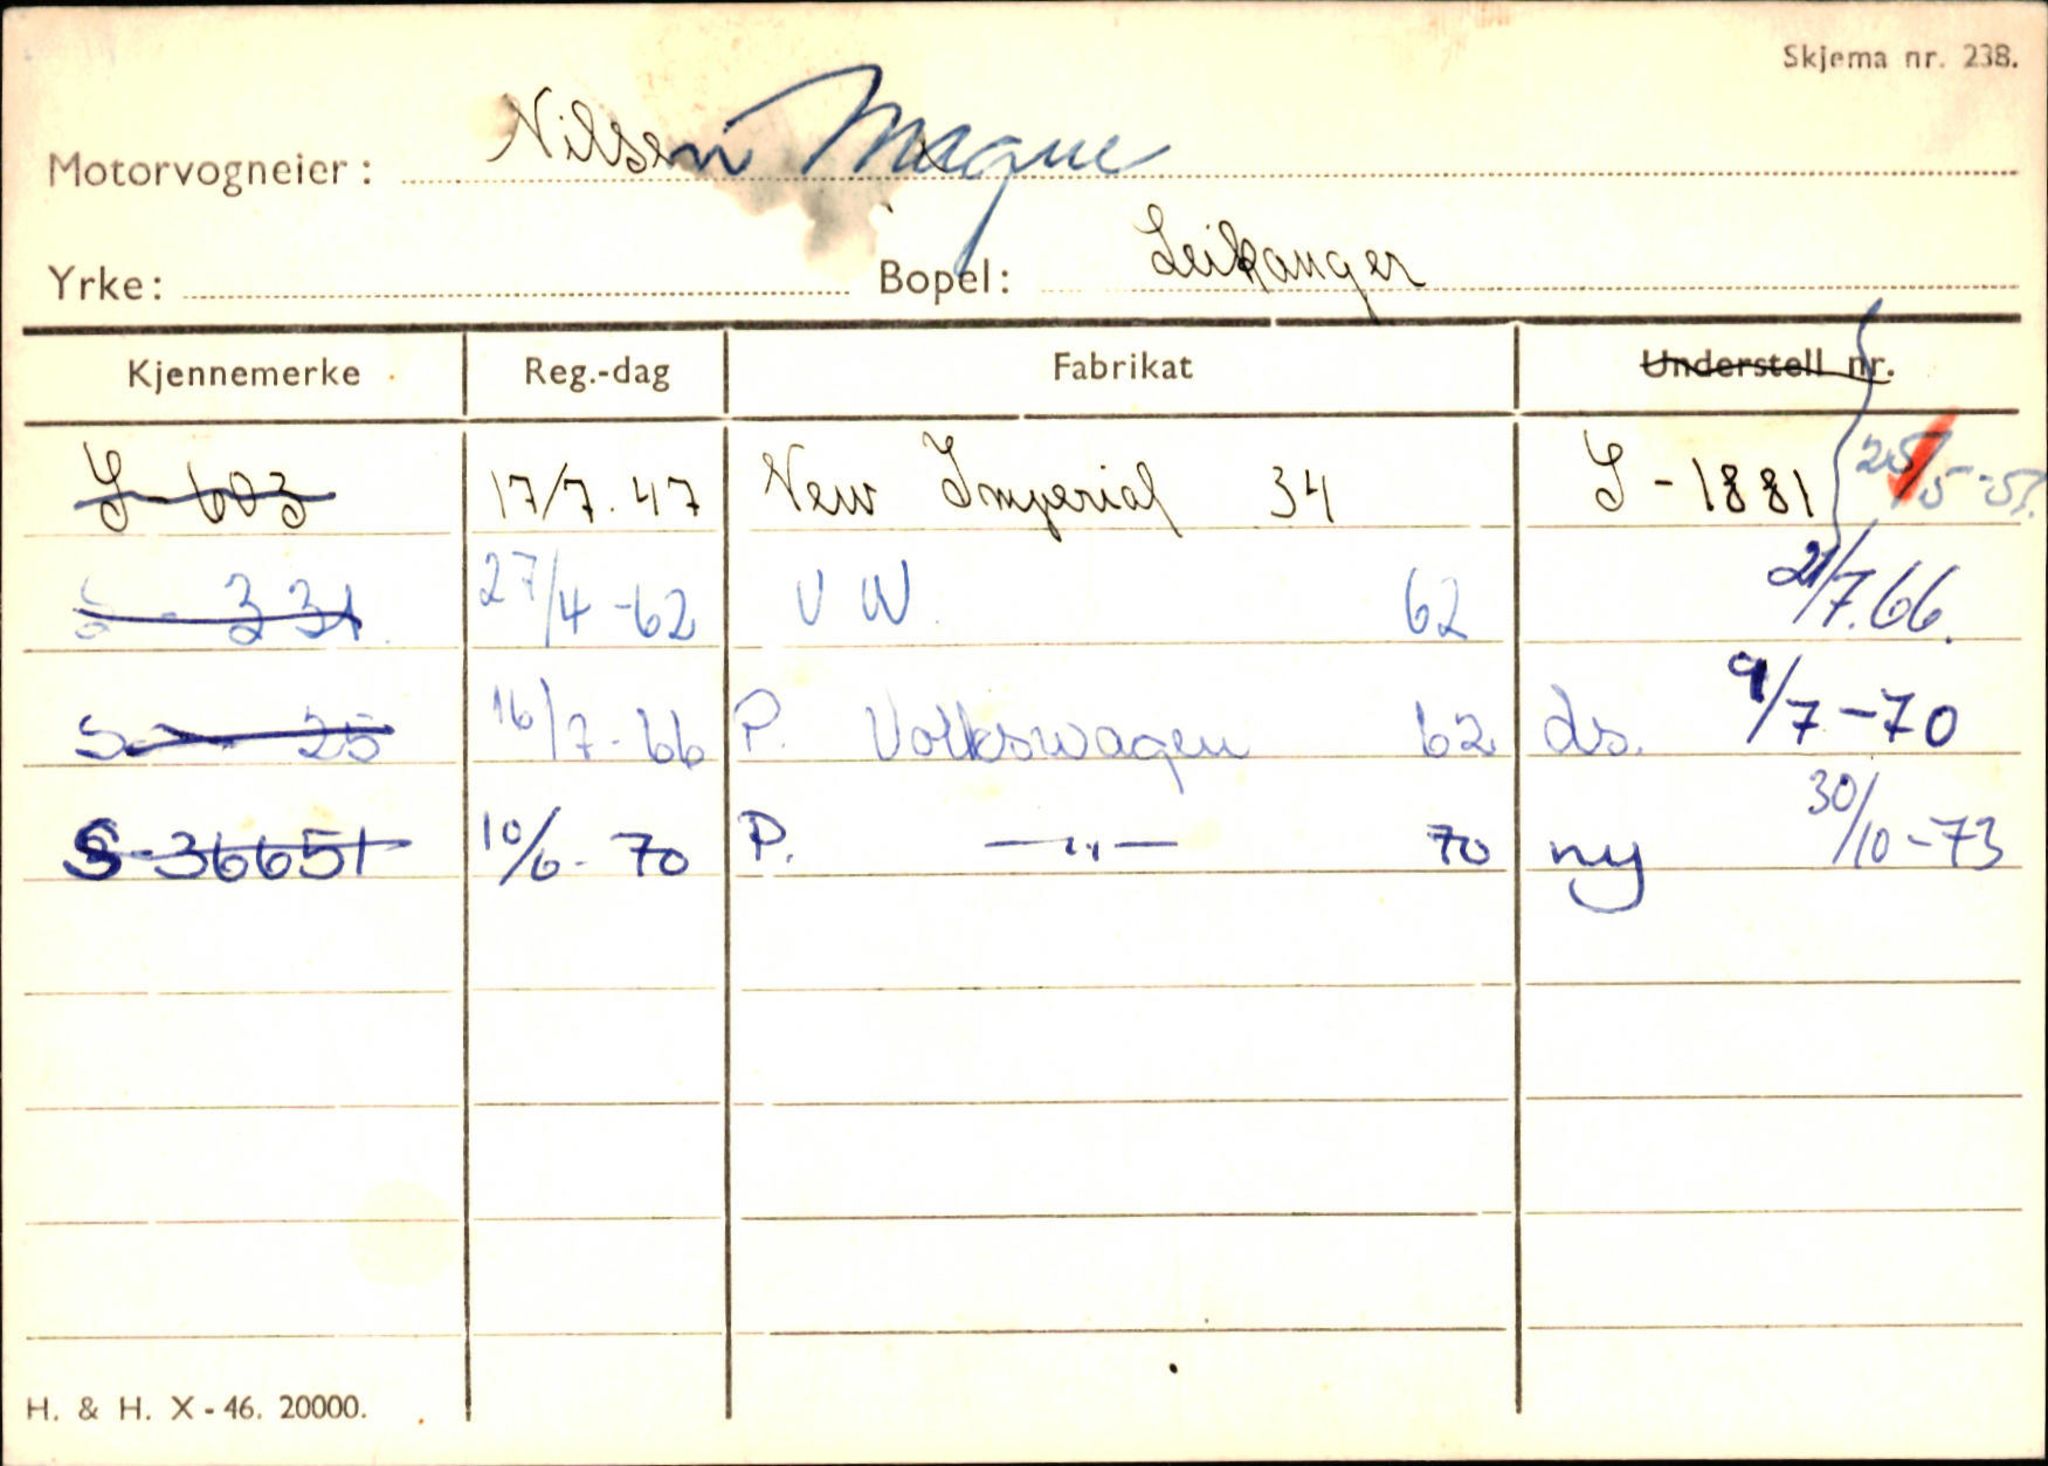 Skjema nr. 238.
Motorvogneier: Nilsen Magne
Yrke: Bopel: Leikanger
Kjennemerke Reg.-dag Fabrikat Understell nr.
S-603 17/7.47 New Imperial 34 S-1881 25/5-51.
S-331 27/4-62 VW. 62 21/7.66.
S-25 16/7-66 P. Volkswagen 62 ds. 9/7-70
S-36651 10/6-70 P. —"— 70 ny 30/10-73
H. & H. X-46. 20000.